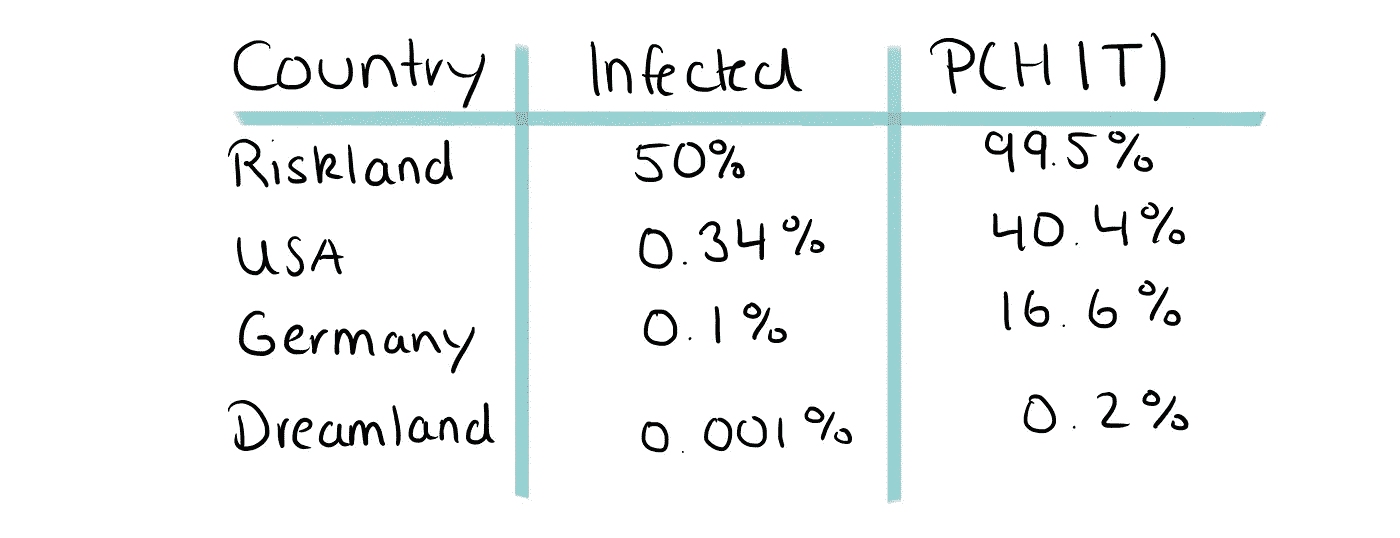 Country Infected P(H|T)
Riskland 50% 99.5%
USA 0.34% 40.4%
Germany 0.1% 16.6%
Dreamland 0.001% 0.2%